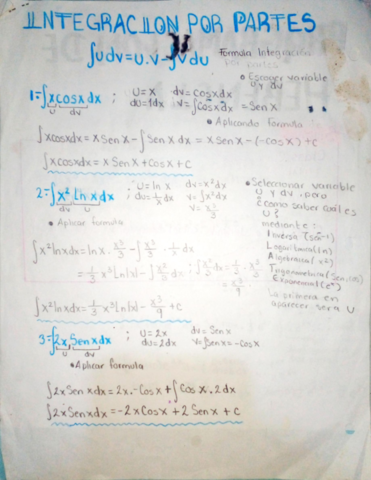 INTEGRACION POR PARTES
∫udv = u.v - ∫vdu Formula Integración por partes
• Escoger variable u y dv
1= ∫xcosx dx ; U=x dv=cosxdx
du=1dx v=∫Cosx dx = Sen x
• Aplicando Formula
∫xcosxdx = x Sen x - ∫Sen x dx = x Sen x - (-cosx) + c
∫xcosxdx = x Sen x + Cosx + c
2= ∫x² ln x dx ; U=ln x dv=x²dx
dv u
du=1/x dx v=∫x²dx
v=x³/3
• Aplicar formula
• Seleccionar variable
u y dv, pero
¿Como saber cual es
U?
mediante:
Inversa (Sen⁻¹)
Logaritmica (ln)
Algebraica (x²)
Trigonometrica (sen, cos)
Exponencial (eˣ)
la primera en
aparecer sera U
∫x² lnx dx = lnx . x³/3 - ∫x³/3 . 1/x dx
= 1/3 x³ Ln|x| - ∫x²/3 dx ; ∫x²/3 dx = 1/3 . x³/3
= x³/9
∫x² lnx dx = 1/3 x³ Ln|x| - x³/9 + c
3= ∫2x Sen x dx ; U=2x dv=Sen x
u dv
du=2dx v=∫Sen x = -Cosx
• Aplicar formula
∫2x Sen x dx = 2x . -Cosx + ∫Cosx . 2dx
∫2x Sen x dx = -2x Cosx + 2 Sen x + c